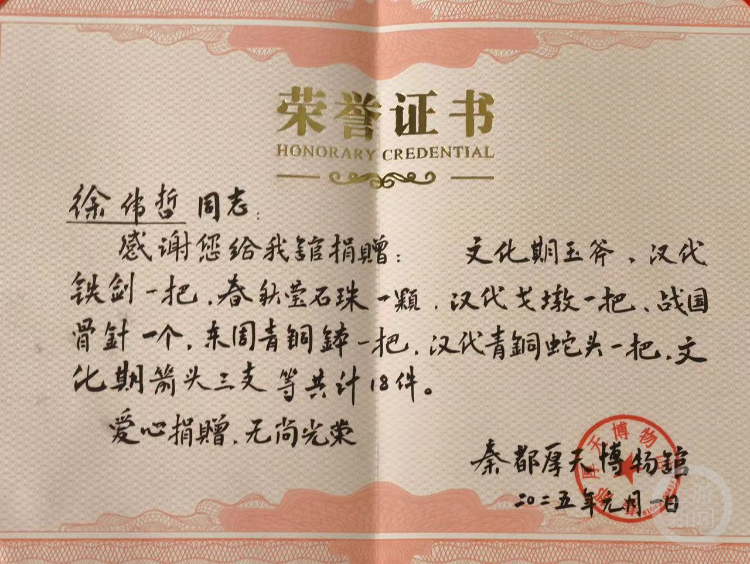 荣誉证书
HONORARY CREDENTIAL
徐伟哲同志:
感谢您给我舘捐赠: 文化期玉斧、汉代
铁剑一把、春秋莹石珠一颗、汉代戈墩一把、战国
骨针一个、东周青铜钵一把、汉代青铜蛇头一把、文
化期箭头三支等共计18件。
爱心捐赠、无尚光荣
秦都厚天博物舘
二〇二五年元月一日